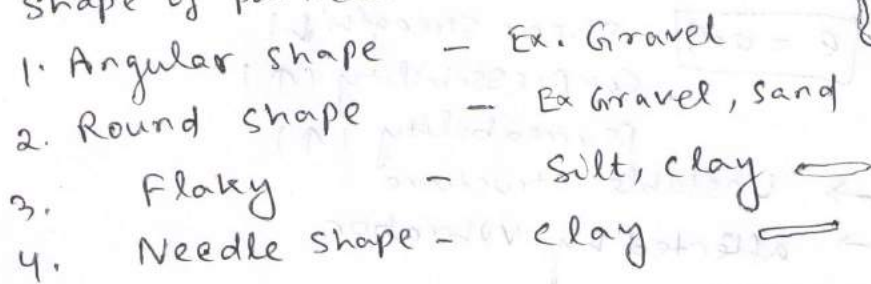 Shape of
1. Angular shape - Ex. Gravel
2. Round shape - Ex Gravel, Sand
3. Flaky - Silt, clay
4. Needle shape - clay